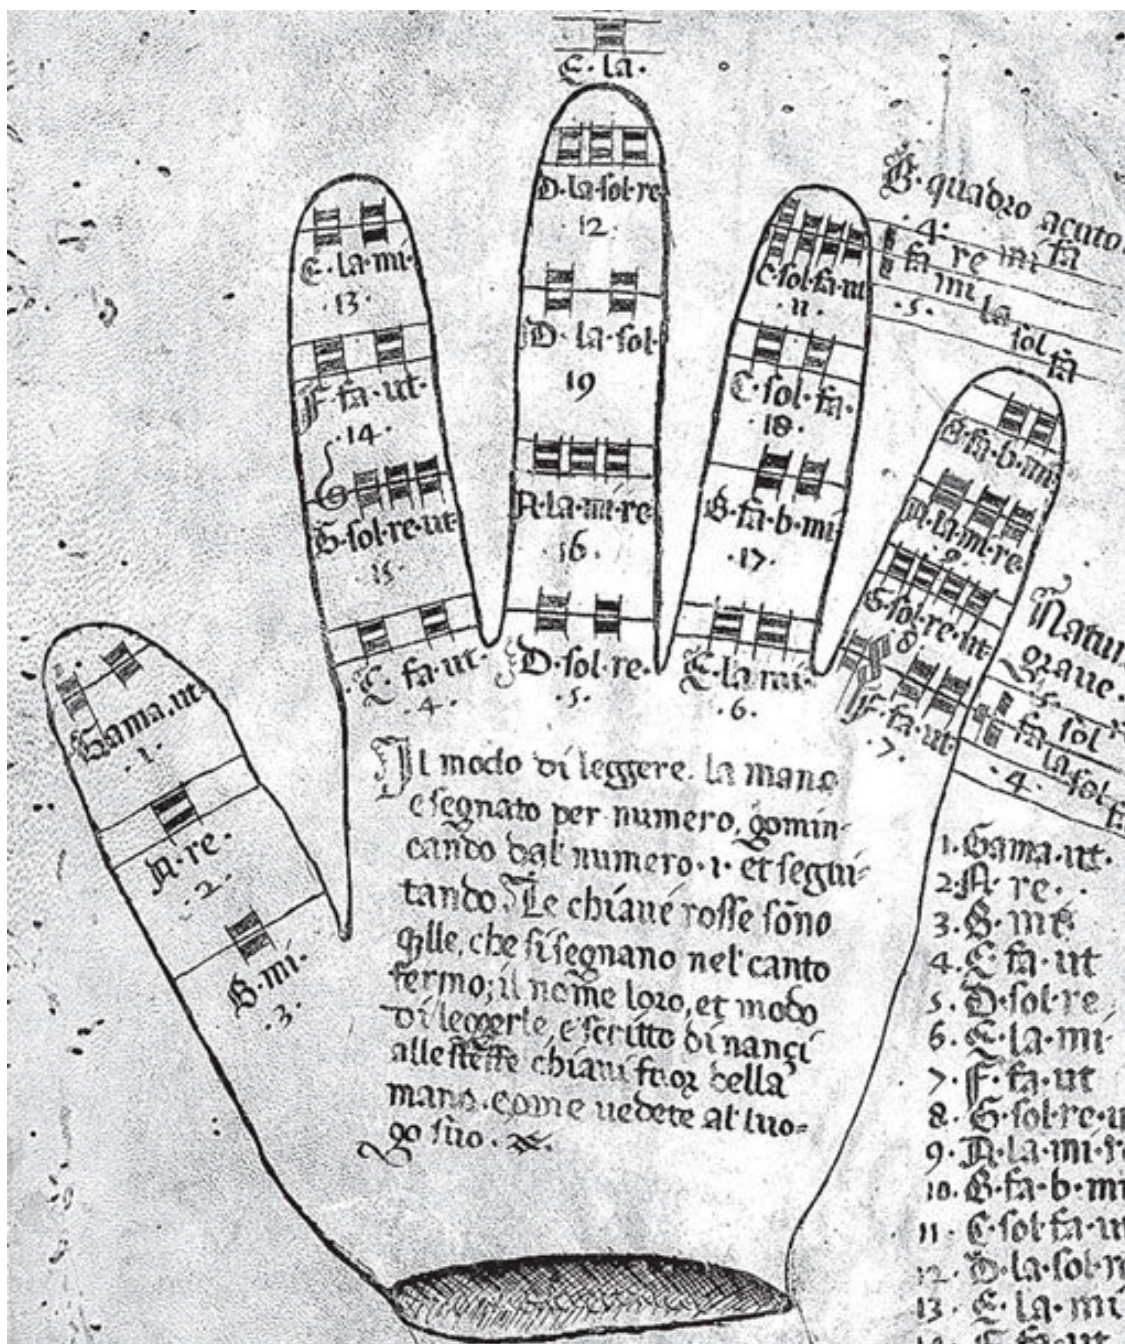 E·la·
D·la·sol·re
·12·
D·la·sol·
19
A·la·mi·re
·16·
D·sol·re·
·5·
E·la·mi·
·13·
F·fa·ut·
·14·
G·sol·re·ut·
·15·
·C·fa·ut·
·4·
C·sol·fa·ut
·11·
C·sol·fa·
·18·
B·fa·b·mi
·17·
E·la·mi·
·6·
B·fa·b·mi·
A·la·mi·re·
·9·
G·sol·re·ut·
8
F·fa·ut·
·7·
Gama·ut·
·1·
A·re·
·2·
B·mi·
·3·
B·quadro acuto·
·4·
re mi fa
fa mi la
·5·
sol fa
Natur
graue·
·5·
sol
fa la sol
·4·
Il modo di leggere. la mano
e segnato per numero, gomin-
cando dal numero·1· et segui-
tando. Le chiaue rosse sõno
qlle, che si segnano nel canto
fermo; il nome loro, et modo
di leggerle, e scritto dinançi
alle stesse chiaui fuor della
mano·come uedete al luo-
go suo·
1·Gama·ut·
2·A·re·
3·B·mi
4·C fa·ut
5·D·sol·re
6·E·la·mi·
·7·F·fa·ut
8·G·sol·re·u
9·A·la·mi·re
10·B·fa·b·mi
11·C·sol·fa·ut
12·D·la·sol·re
13·E·la·mi